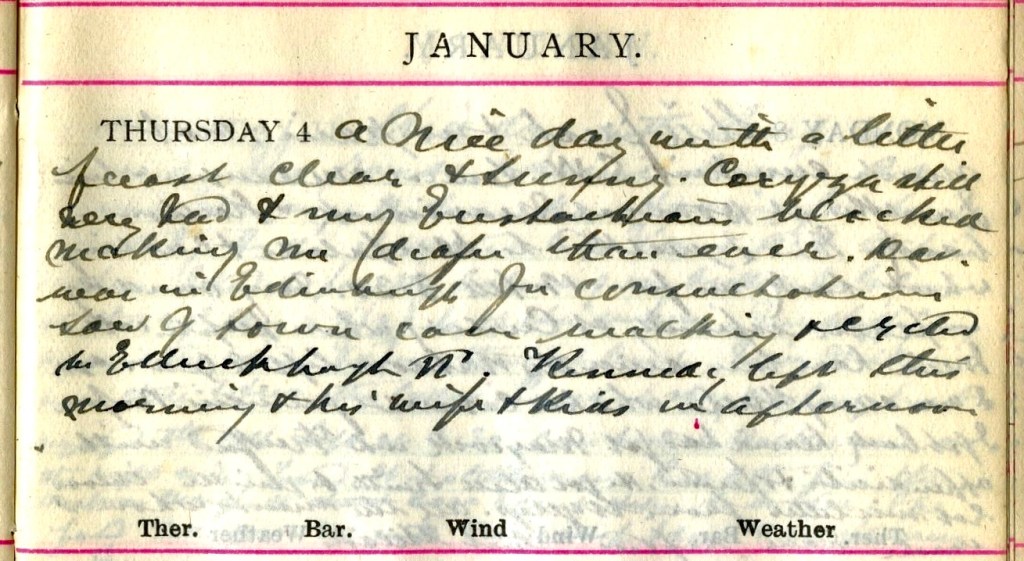 JANUARY.
THURSDAY 4 a Nice day with a little
frost clear & sunny. Coryza still
very bad & my Eustachians blocked
making me deafer than ever. Dav.
was in Edinburgh for consultation
saw town walking & cycled
to . Kennedy left this
morning & his wife & kids in afternoon
Ther. Bar. Wind Weather